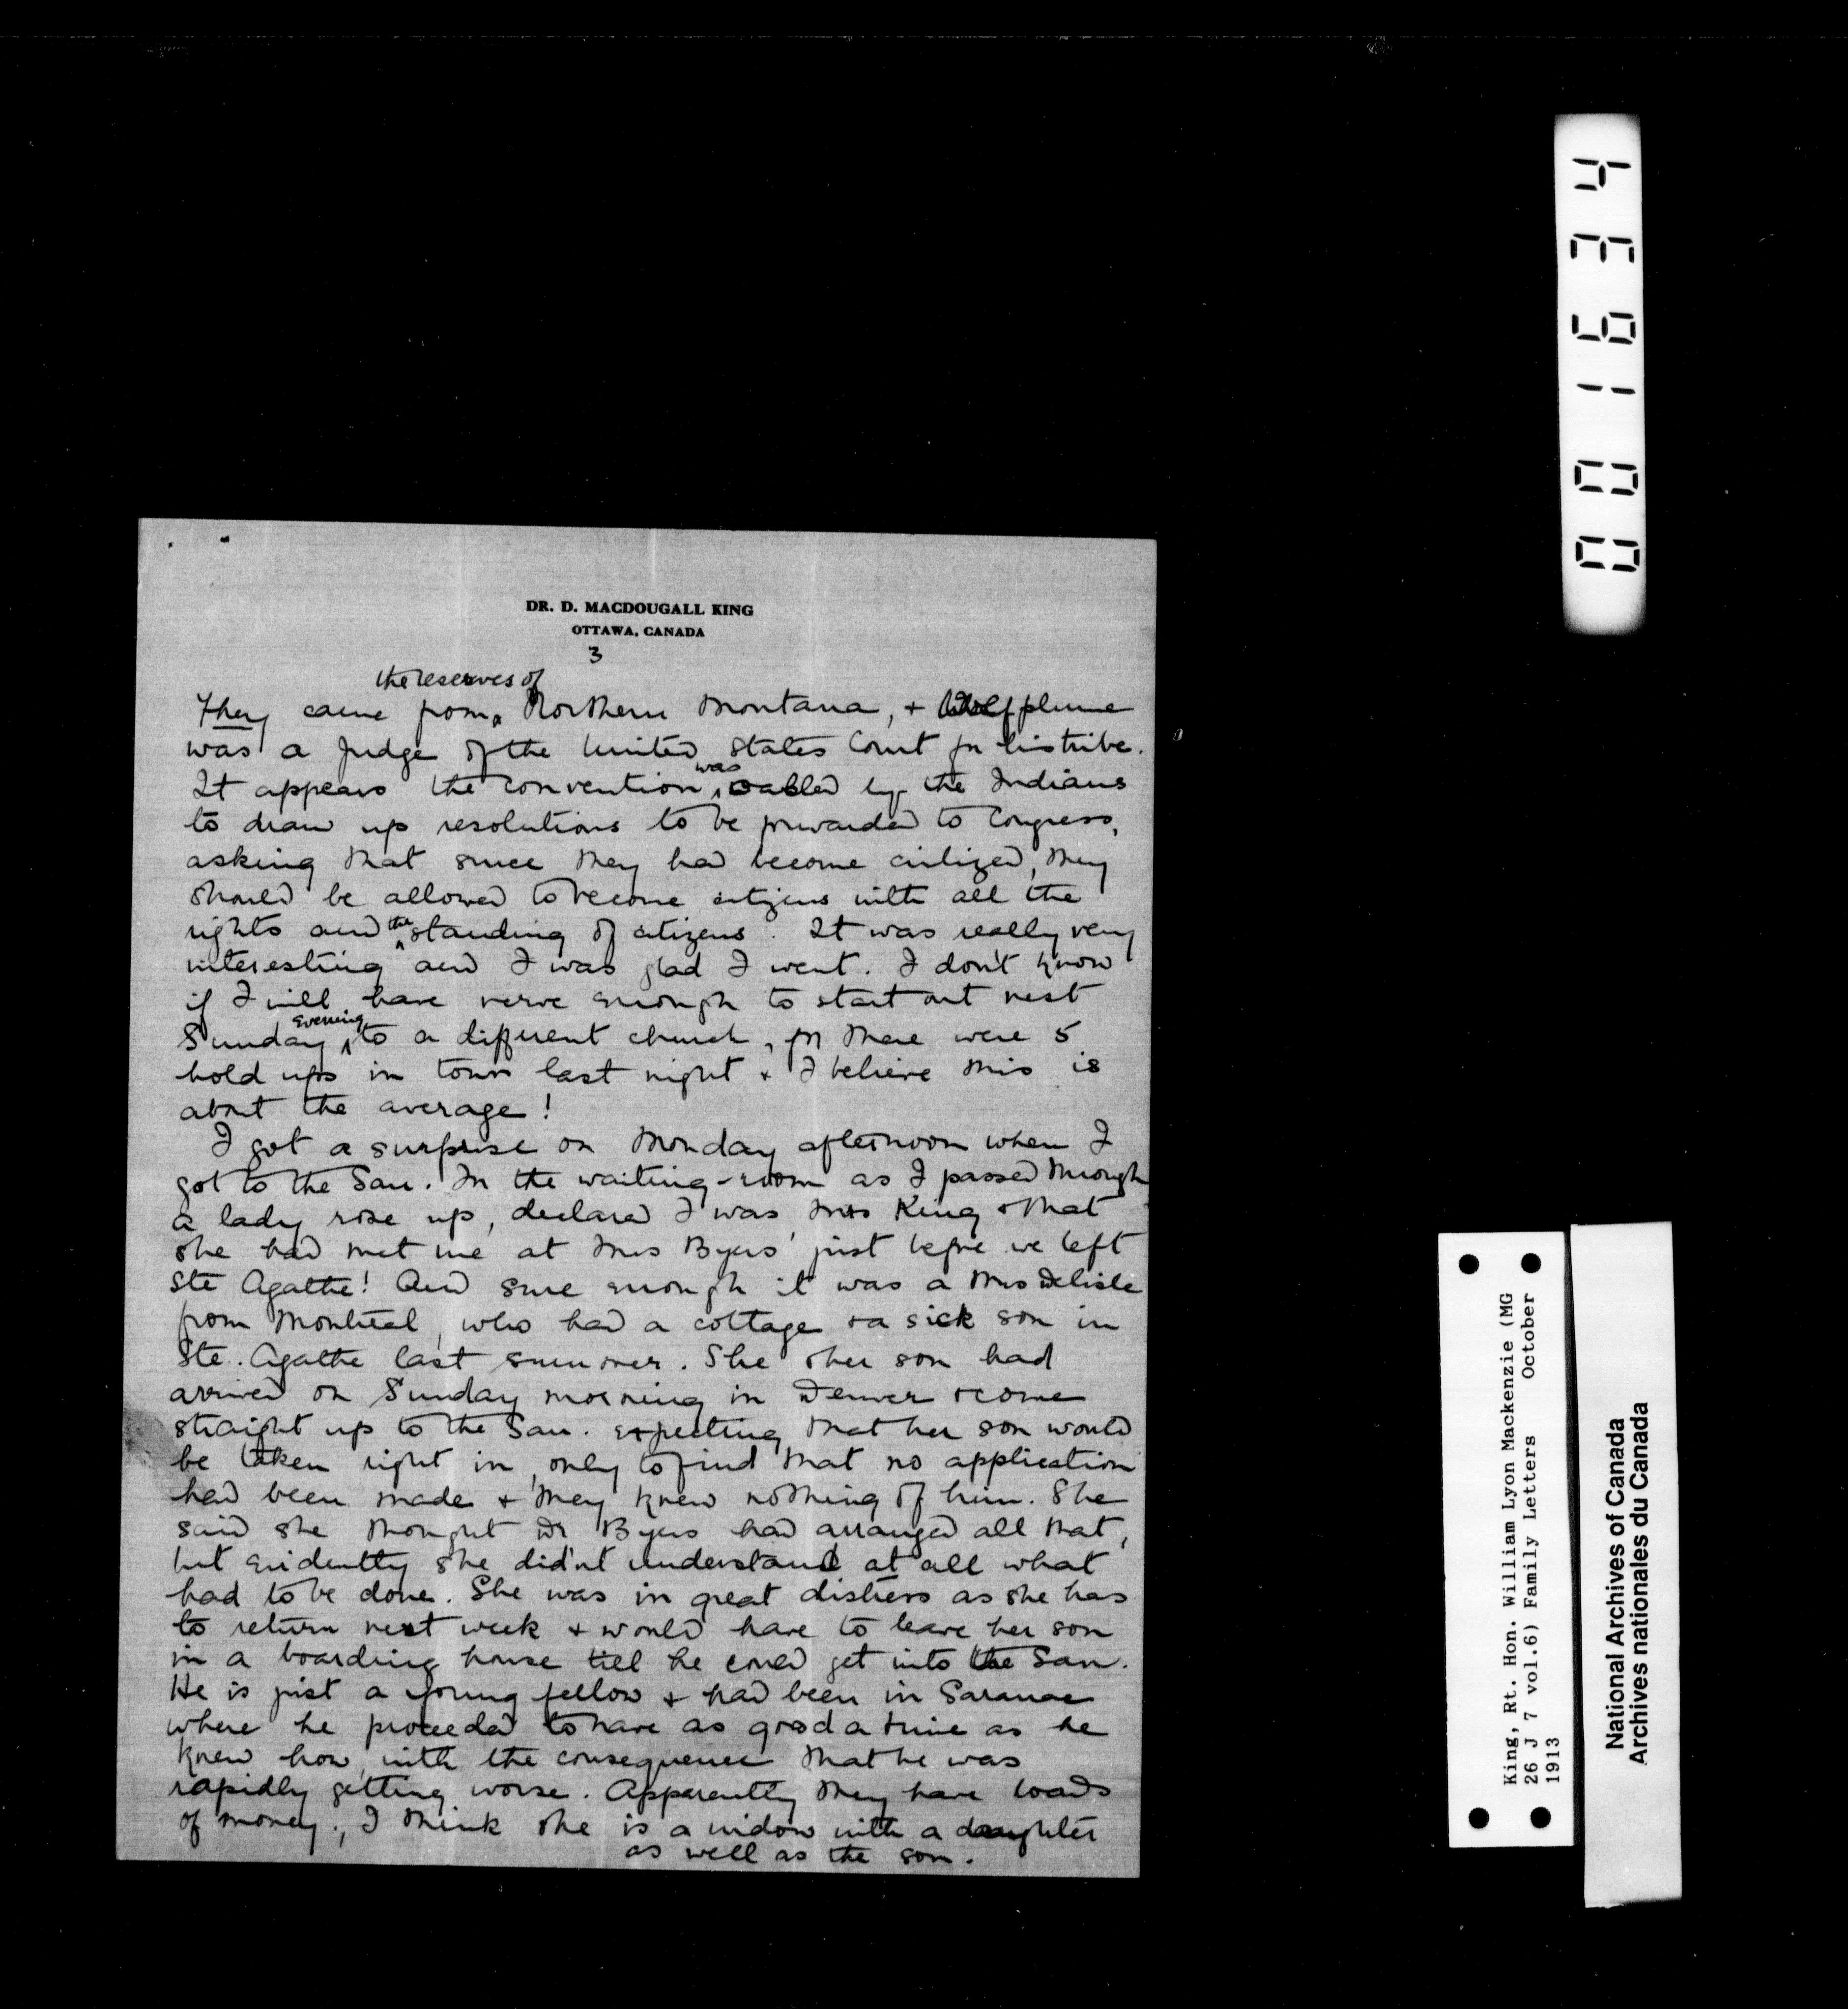 DR. D. MACDOUGALL KING
OTTAWA, CANADA
3
the reserves of
They came from Northern Montana, + Wolfplume
was a Judge of the United States Court for his tribe.
It appears the convention was called by the Indians
to draw up resolutions to be forwarded to Congress,
asking that since they had become civilized, they
should be allowed to become citizens with all the
rights and the standing of citizens. It was really very
interesting and I was glad I went. I don't know
if I will have nerve enough to start out next
Sunday evening to a different church, for there were 5
hold ups in town last night + I believe this is
about the average!
I got a surprise on Monday afternoon when I
got to the San. In the waiting-room as I passed through
a lady rose up, declared I was Mrs King + that
she had met me at Mrs Byers' just before we left
Ste Agathe! And sure enough it was a Mrs Delisle
from Montreal, who had a cottage + a sick son in
Ste. Agathe last summer. She + her son had
arrived on Sunday morning in Denver + come
straight up to the San. expecting that her son would
be taken right in, only to find that no application
had been made + they knew nothing of him. She
said she thought Dr Byers had arranged all that,
but evidently she didn't understand at all what
had to be done. She was in great distress as she has
to return next week + would have to leave her son
in a boarding house till he could get into the San.
He is just a young fellow + had been in Saranac
where he proceeded to have as good a time as he
knew how, with the consequence that he was
rapidly getting worse. Apparently they have loads
of money., I think she is a widow with a daughter
as well as the son.
001634
King, Rt. Hon. William Lyon Mackenzie (MG
26 J 7 vol.6) Family Letters October
1913
National Archives of Canada
Archives nationales du Canada